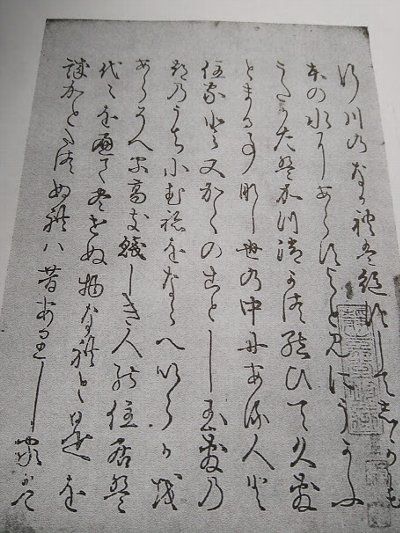 行川のなかれは絶すしてしかも
本の水にあらすよとみにうかふ
うたかたはかつ消かつ結ひて久敷
とまる事なし世の中にある人と
住家と又かくのことし玉敷の
都のうちにむねをならへいらかを
あらそへる高き賤しき人の住居は
代々を経て尽せぬ物なれと是を
誠かとたつぬれは昔ありし家は